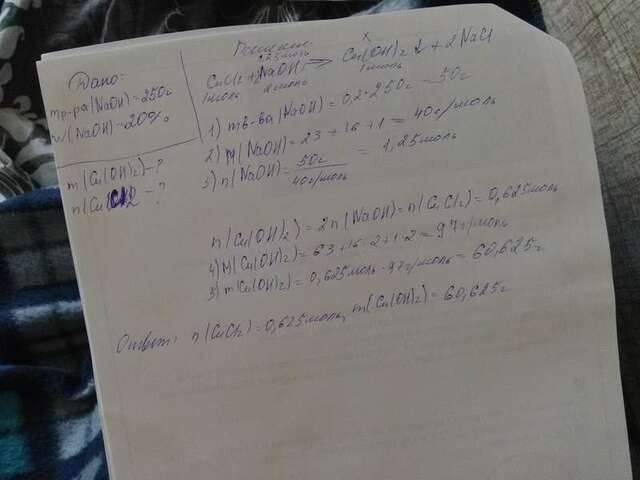 Дано:
mр-ра(NaOH)=250г
w(NaOH)=20%
m(Cu(OH)2)-?
n(CuCl2)-?
Решение:
1,25моль x
CuCl2+2NaOH → Cu(OH)2↓+2NaCl
1моль 2моль 1моль
1) mв-ва(NaOH)=0,2·250г=50г
2) M(NaOH)=23+16+1=40г/моль
3) n(NaOH)=50г/40г/моль=1,25моль
n(Cu(OH)2)=2n(NaOH)=n(CuCl2)=0,625моль
4) M(Cu(OH)2)=63+16·2+1·2=97г/моль
5) m(Cu(OH)2)=0,625моль·97г/моль=60,625г
Ответ: n(CuCl2)=0,625моль, m(Cu(OH)2)=60,625г